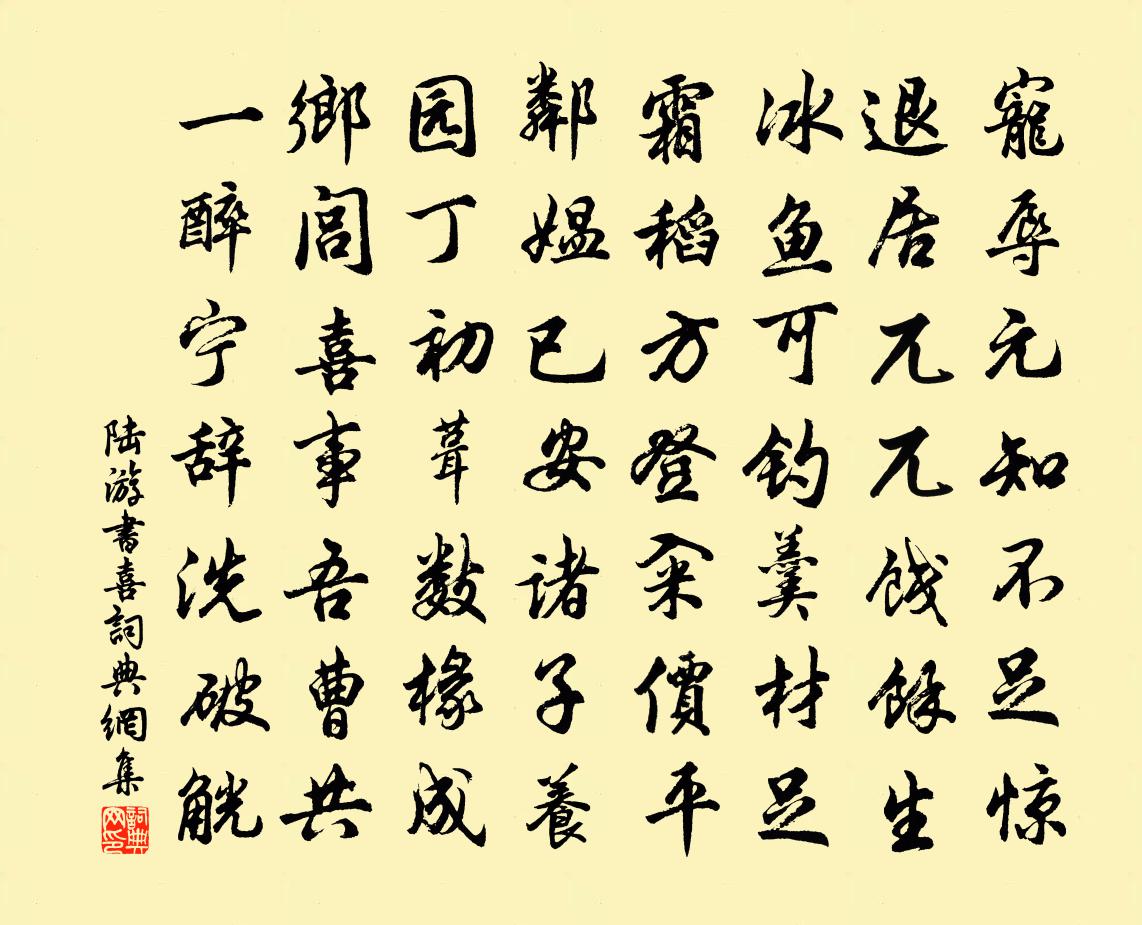 寵辱元知不足惊
退居兀兀餞餘生
冰鱼可钓羹材足
霜稻方登籴價平
鄰媪已安諸子養
园丁初葺数椽成
鄉闾喜事吾曹共
一醉宁辞洗破觥
陆游書喜詞典網集
詞典网印